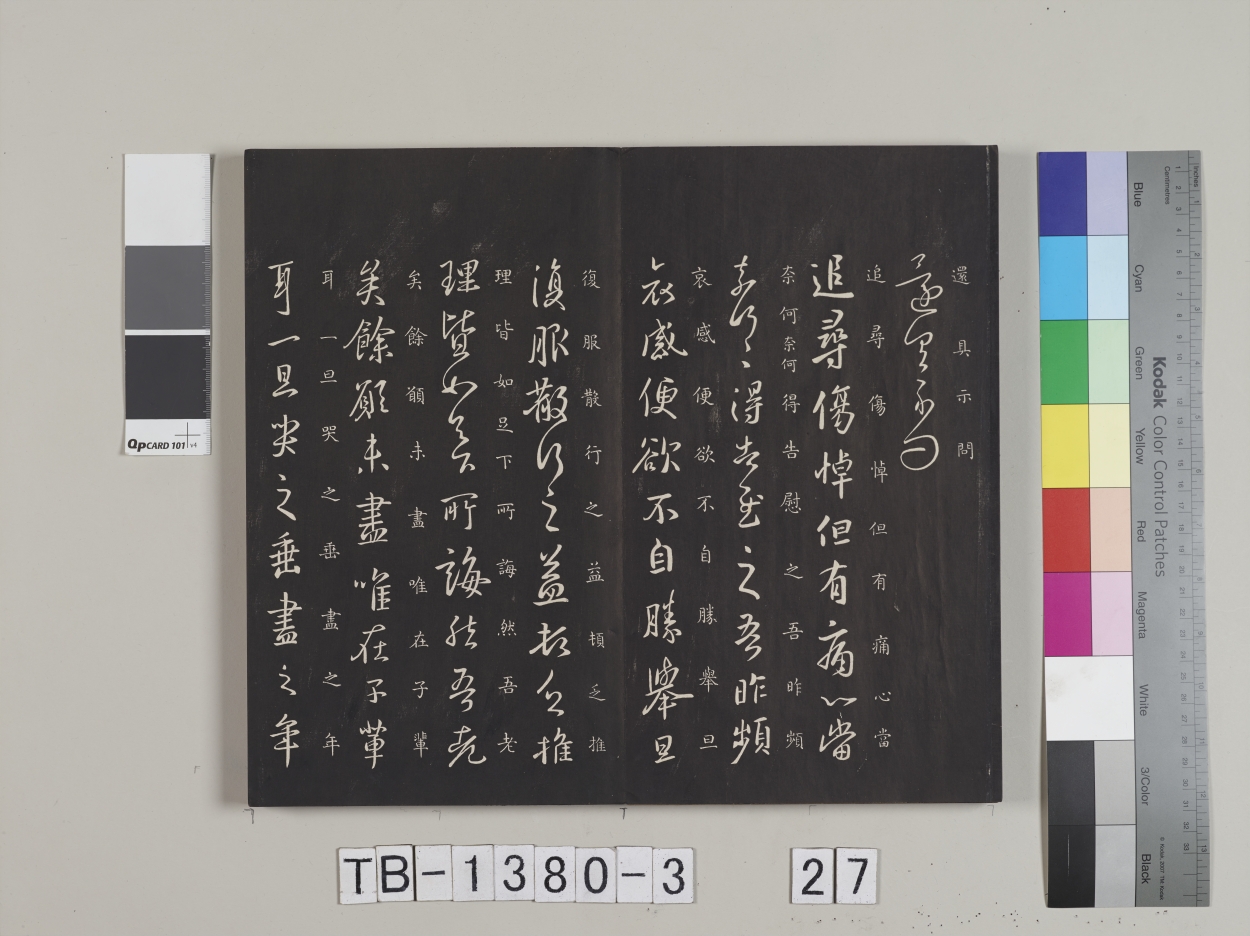 還具示問
還具示問
追尋傷悼但有痛心當
追尋傷悼但有痛心當
奈何奈何得告慰之吾昨頻
奈何〻得告慰之吾昨頻
哀感便欲不自勝舉旦
哀感便欲不自勝舉旦
復服散行之益頓乏推
復服散行之益頓乏推
理皆如足下所誨然吾老
理皆如足下所誨然吾老
矣餘願未盡唯在子輩
矣餘願未盡唯在子輩
耳一旦哭之垂盡之年
耳一旦哭之垂盡之年
QPCARD 101 v4
Kodak Color Control Patches
Blue
Cyan
Green
Yellow
Red
Magenta
White
3/Color
Black
Inches
Centimetres
TB-1380-3
27